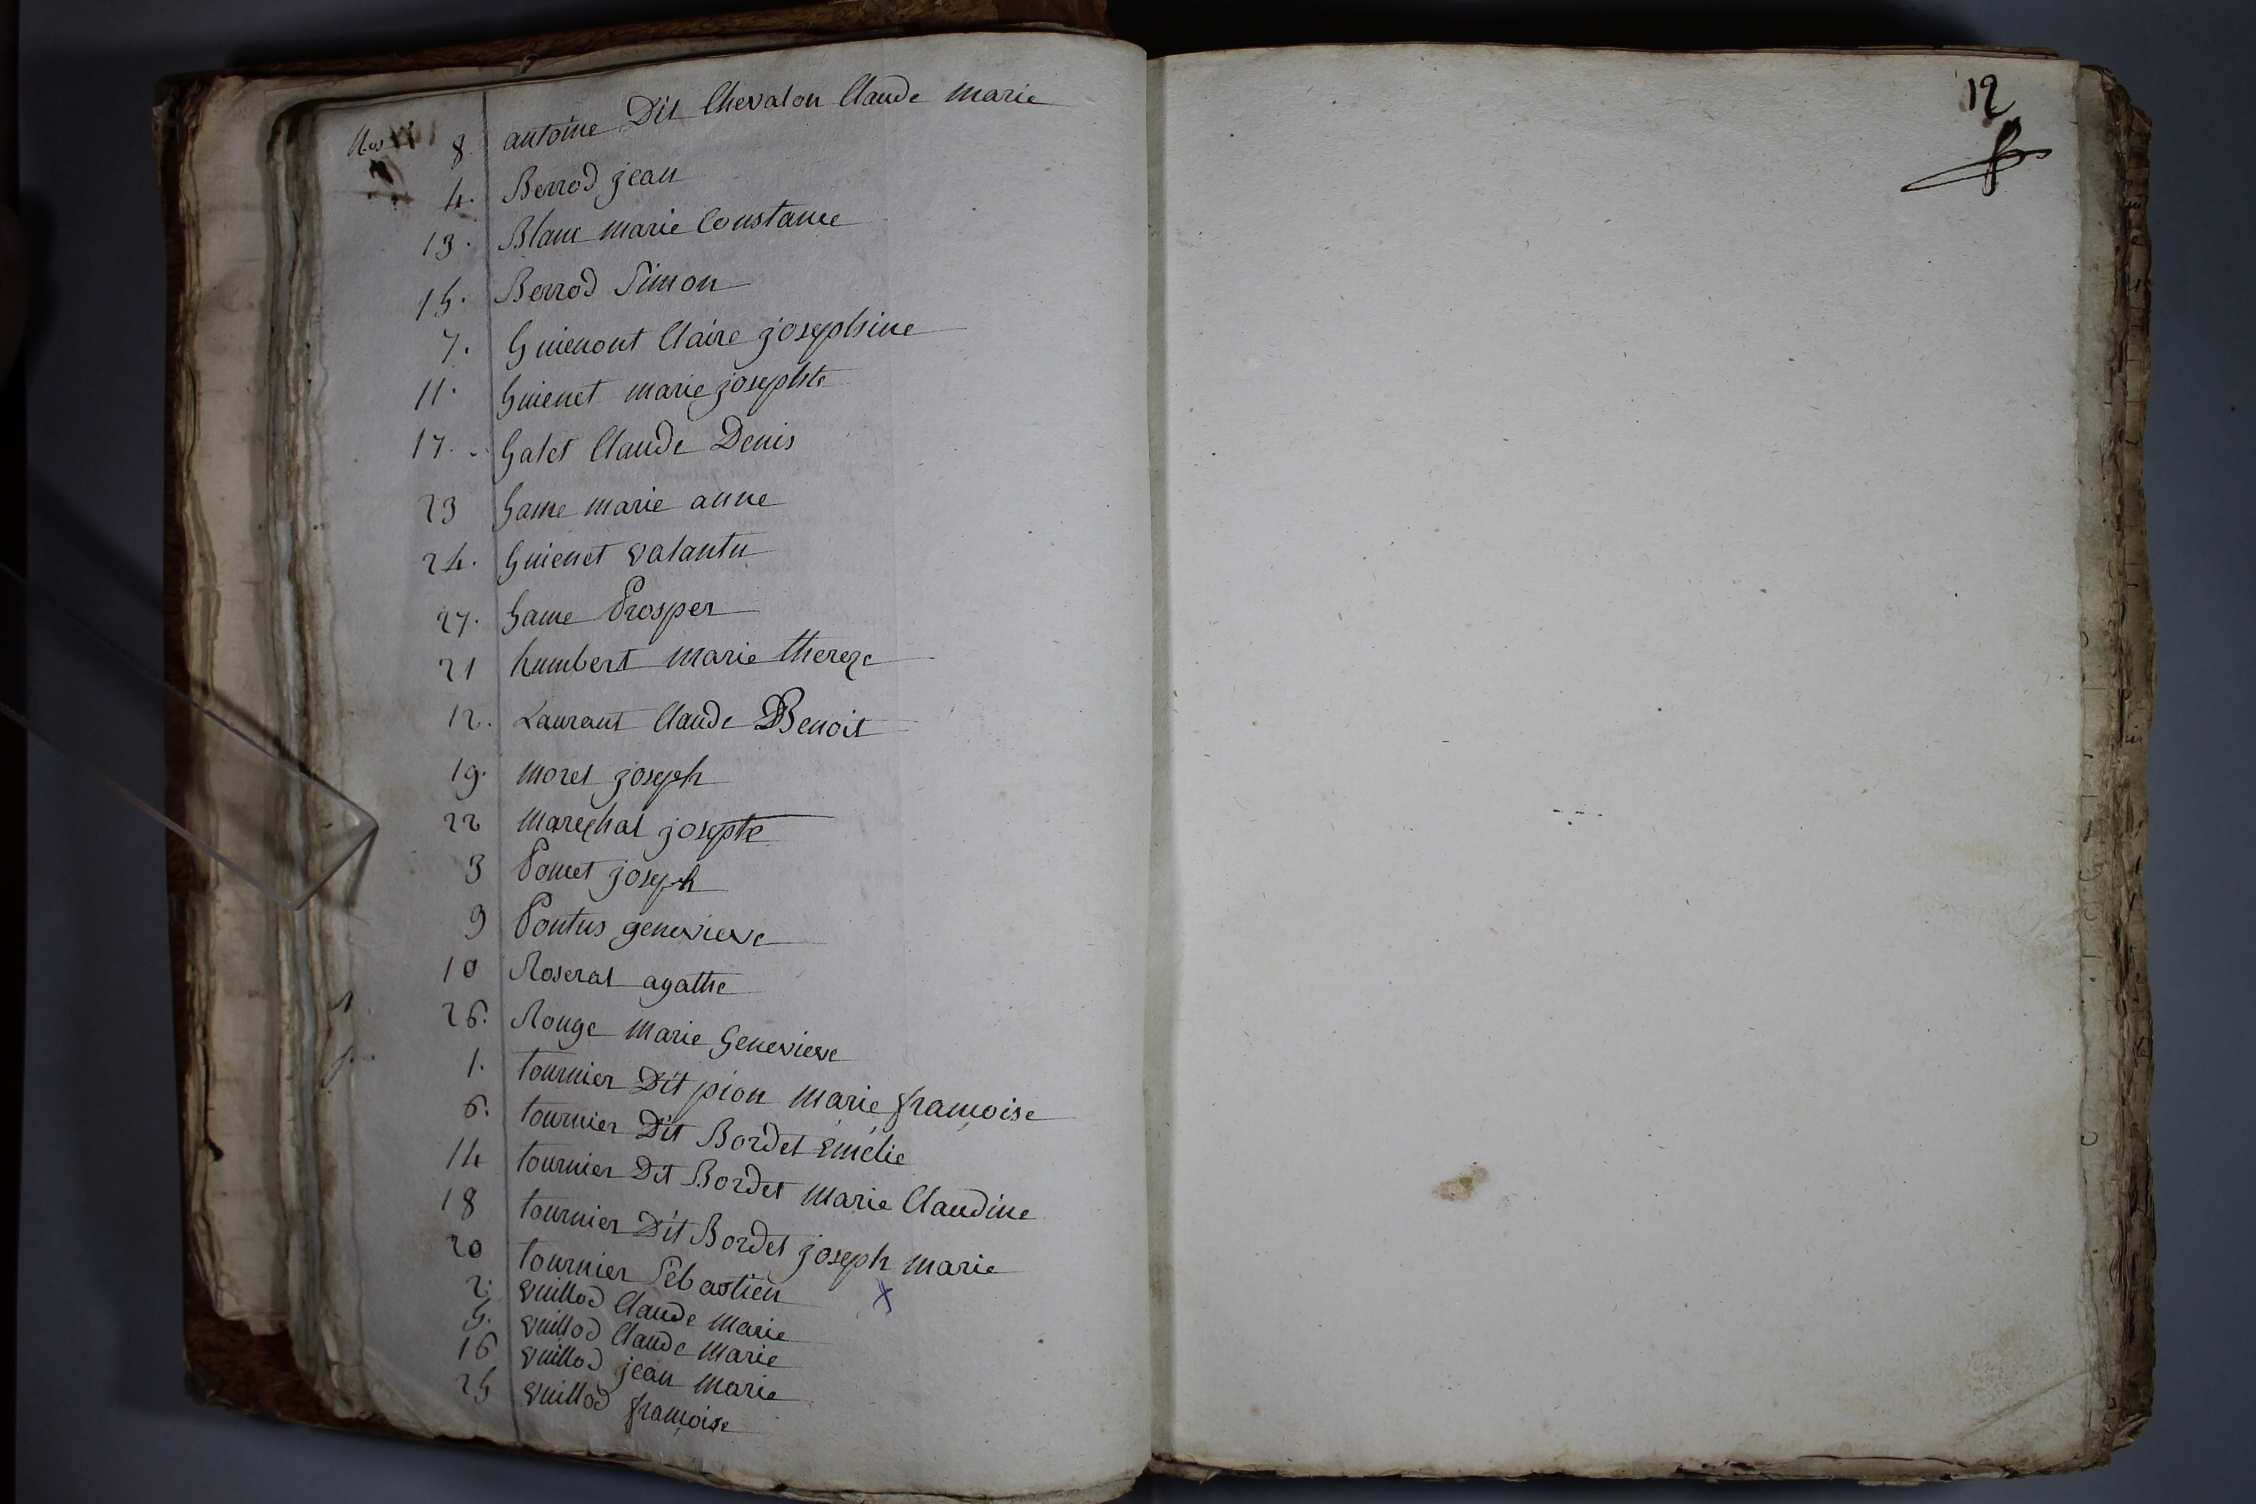 Nos 8. antoine Dit Chevalon Claude marie
4. Berrod jean
13. Blanc marie Constance
15. Berrod Simon
7. Guienont Claire josephine
11. Guienet marie josephte
17. Galet Claude Denis
23 Game marie anne
24. Guienet valantin
27. Game Prosper
21 humbert marie thereze
12. Laurant Claude Benoit
19. moret joseph
22 marechal josephte
3 Poncet joseph
9 Pontus genevieve
10 Roserat agathe
26. Rouge marie Genevieve
1. tournier Dit pion marie françoise
6. tournier Dit Bordet émélie
14 tournier Dit Bordet marie Claudine
18 tournier Dit Bordet joseph marie
20 tournier Sébastien x
2. vuillod Claude marie
5. vuillod Claude marie
16 vuillod jean marie
25 vuillod françoise
12